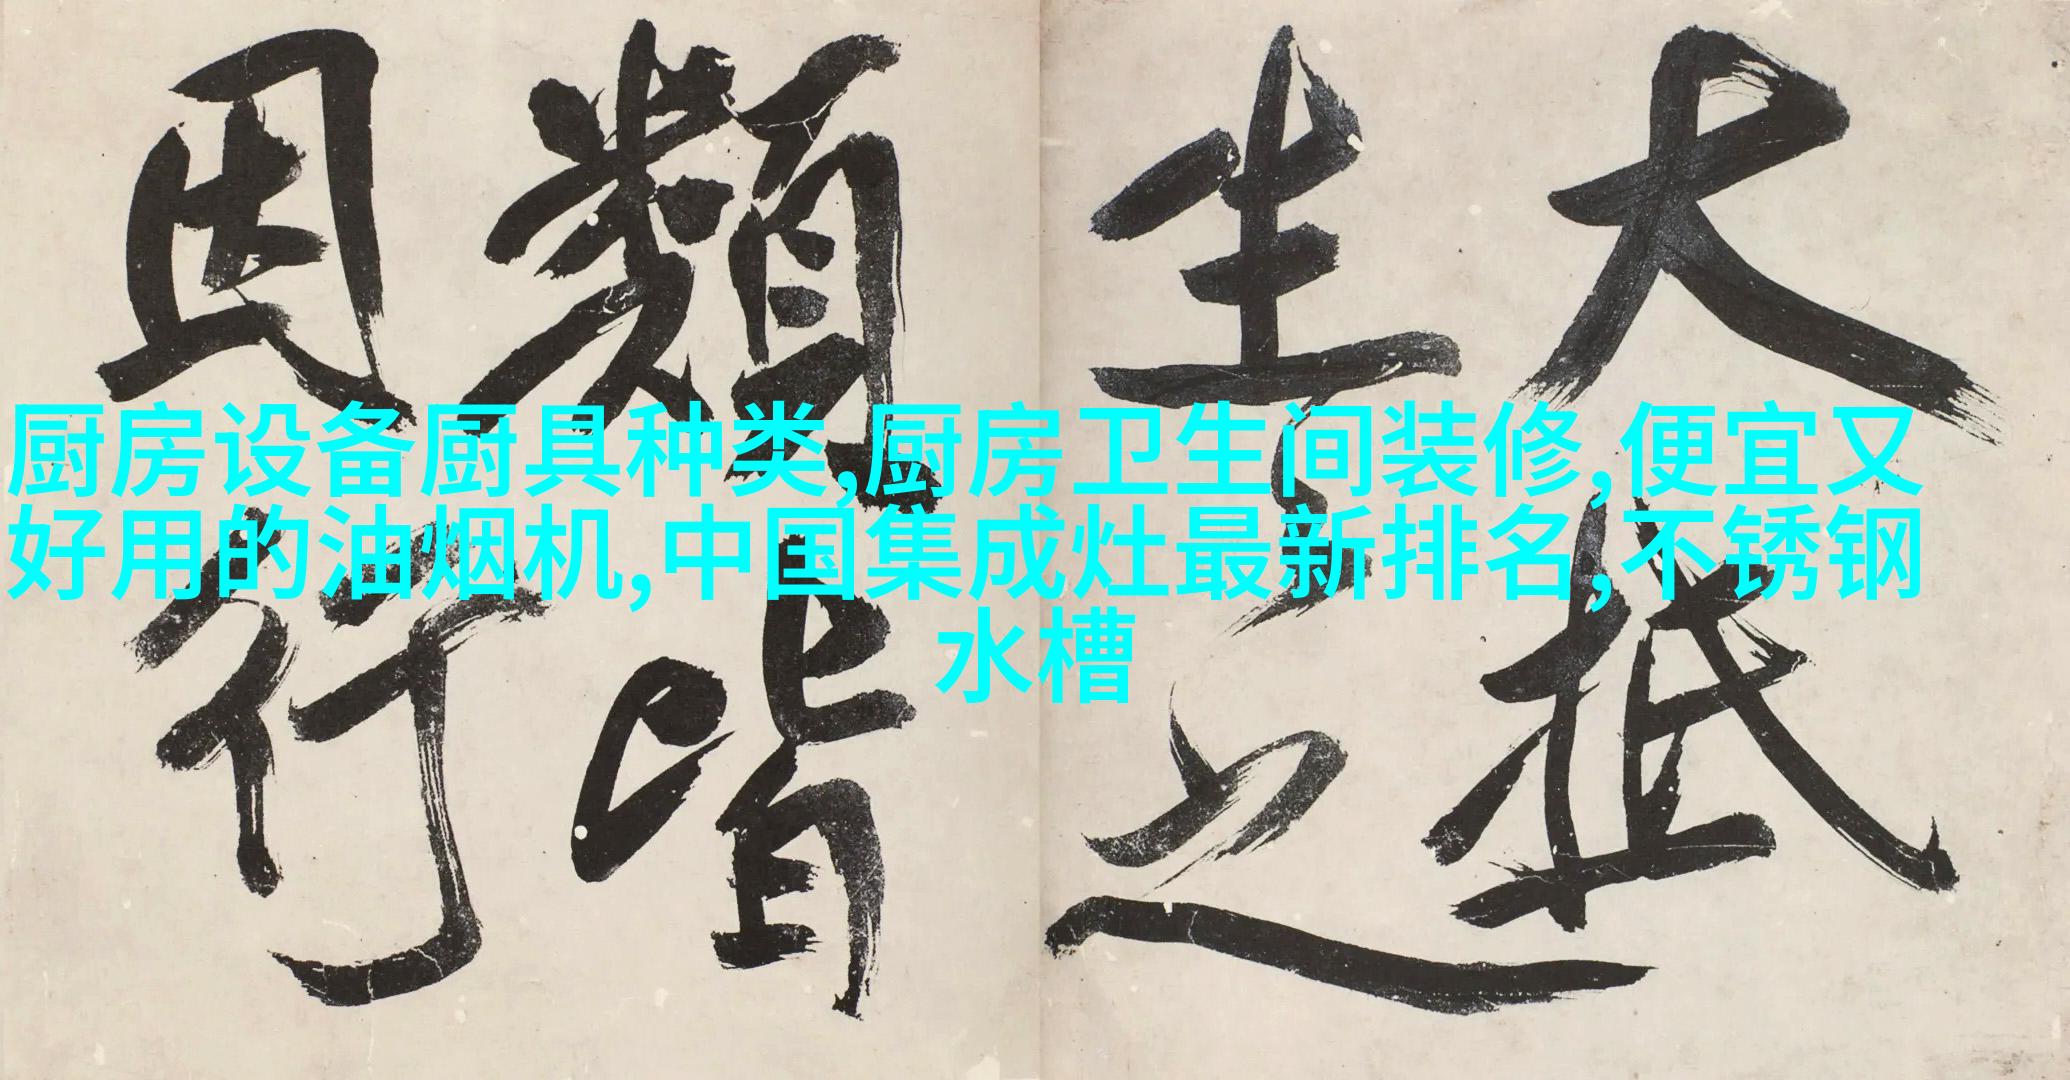 大抵
生之
類皆
因行
厨房设备厨具种类,厨房卫生间装修,便宜又
好用的油烟机,中国集成灶最新排名,不锈钢
水槽